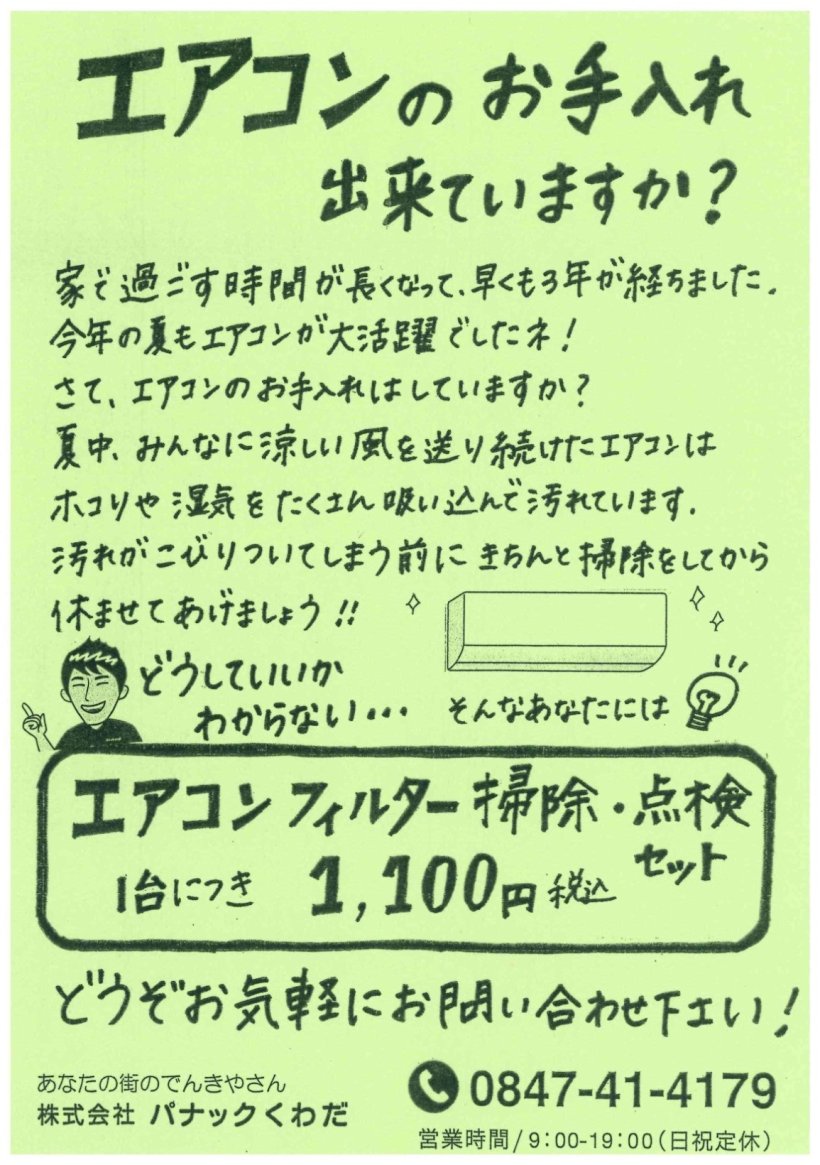 エアコンのお手入れ
出来ていますか?
家で過ごす時間が長くなって、早くも3年が経ちました。
今年の夏もエアコンが大活躍でしたネ!
さて、エアコンのお手入れはしていますか?
夏中、みんなに涼しい風を送り続けたエアコンは
ホコリや湿気をたくさん吸い込んで汚れています。
汚れがこびりついてしまう前にきちんと掃除をしてから
休ませてあげましょう!!
どうしていいか
わからない…
そんなあなたには
エアコンフィルター掃除・点検
セット
1台につき 1,100円税込
どうぞお気軽にお問い合わせ下さい!
あなたの街のでんきやさん
株式会社 パナックくわだ
0847-41-4179
営業時間/9:00-19:00(日祝定休)